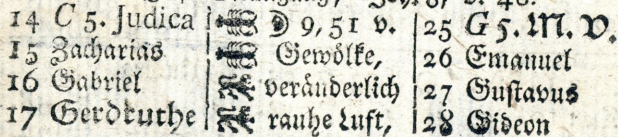 14 C 5. Judica | ☽ 9, 51 v. | 25 G 5. M. V.
15 Zacharias | Gewölke, | 26 Emanuel
16 Gabriel | veränderlich | 27 Gustavus
17 Gerdruthe | rauhe Luft, | 28 Gideon